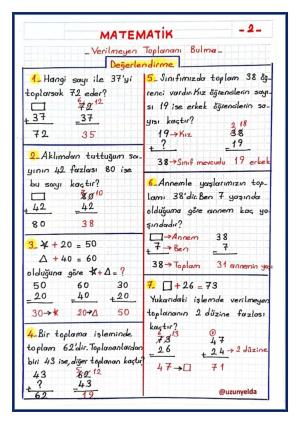 MATEMATİK
-2-
Verilmeyen Toplananı Bulma
Değerlendirme
1- Hangi sayı ile 37'yi
toplarsak 72 eder?
6 12
□ 72
+ 37 - 37
72 35
2- Aklımdan tuttuğum sa-
yının 42 fazlası 80 ise
bu sayı kaçtır?
7 10
□ 80
+ 42 - 42
80 38
3- ★ + 20 = 50
△ + 40 = 60
olduğuna göre ★+△ = ?
50 60 30
- 20 - 40 + 20
30→★ 20→△ 50
4- Bir toplama işleminde
toplam 62'dir. Toplananlardan
biri 43 ise, diğer toplanan kaçtır?
5 12
43 62
+ ? - 43
62 19
5- Sınıfımızda toplam 38 öğ-
renci vardır. Kız öğrencilerin sayı-
sı 19 ise erkek öğrencilerin sa-
yısı kaçtır?
2 18
19→Kız 38
+ ? - 19
38→Sınıf mevcudu 19 erkek
6- Annemle yaşlarımızın top-
lamı 38'dir. Ben 7 yaşında
olduğuma göre annem kaç ya-
şındadır?
□→Annem 38
+ 7→Ben - 7
38→Toplam 31 annenin yaşı
7- □ + 26 = 73
Yukarıdaki işlemde verilmeyen
toplananın 2 düzine fazlası
kaçtır?
6 13
73 47
- 26 + 24→2 düzine
47→□ 71
@uzunyelda